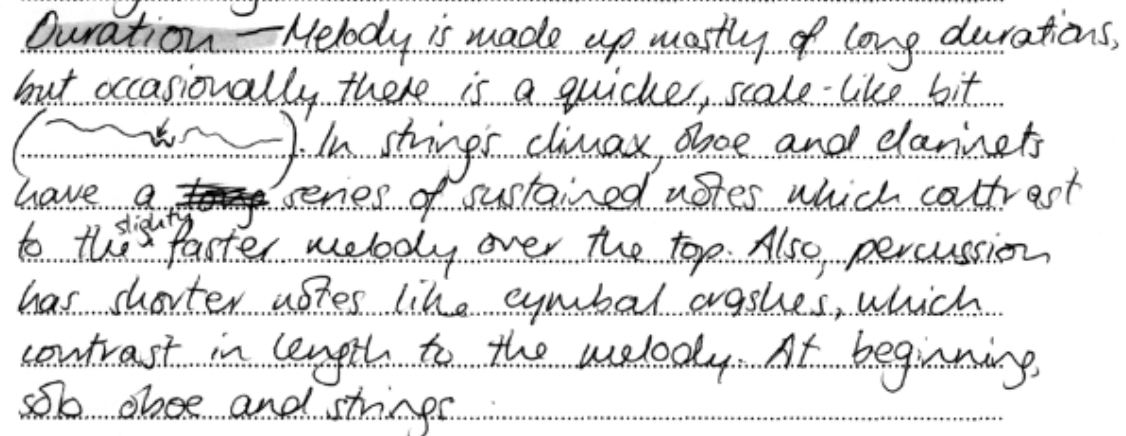 Duration - Melody is made up mostly of long durations,
but occasionally there is a quicker, scale-like bit
( ). In strings climax, oboe and clarinets
have a series of sustained notes which contrast
to the slightly faster melody over the top. Also, percussion
has shorter notes like cymbal crashes, which
contrast in length to the melody. At beginning,
solo oboe and strings